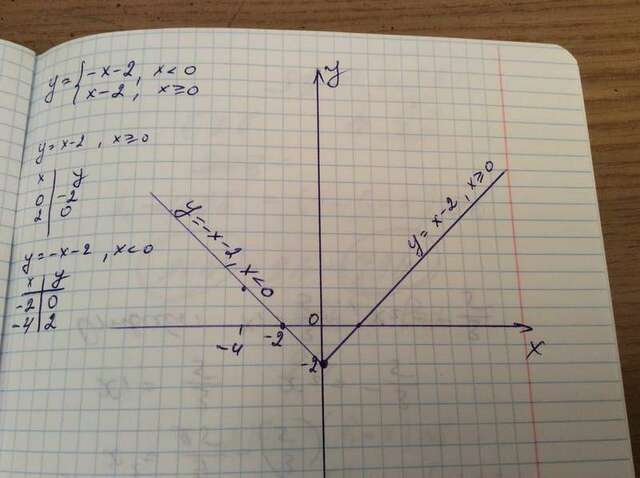 y = { -x-2, x<0
x-2, x≥0
y = x-2, x≥0
x | y
0 | -2
2 | 0
y = -x-2, x<0
x | y
-2 | 0
-4 | 2
y
y = -x-2, x<0
y = x-2, x≥0
0
-4
-2
x
-2